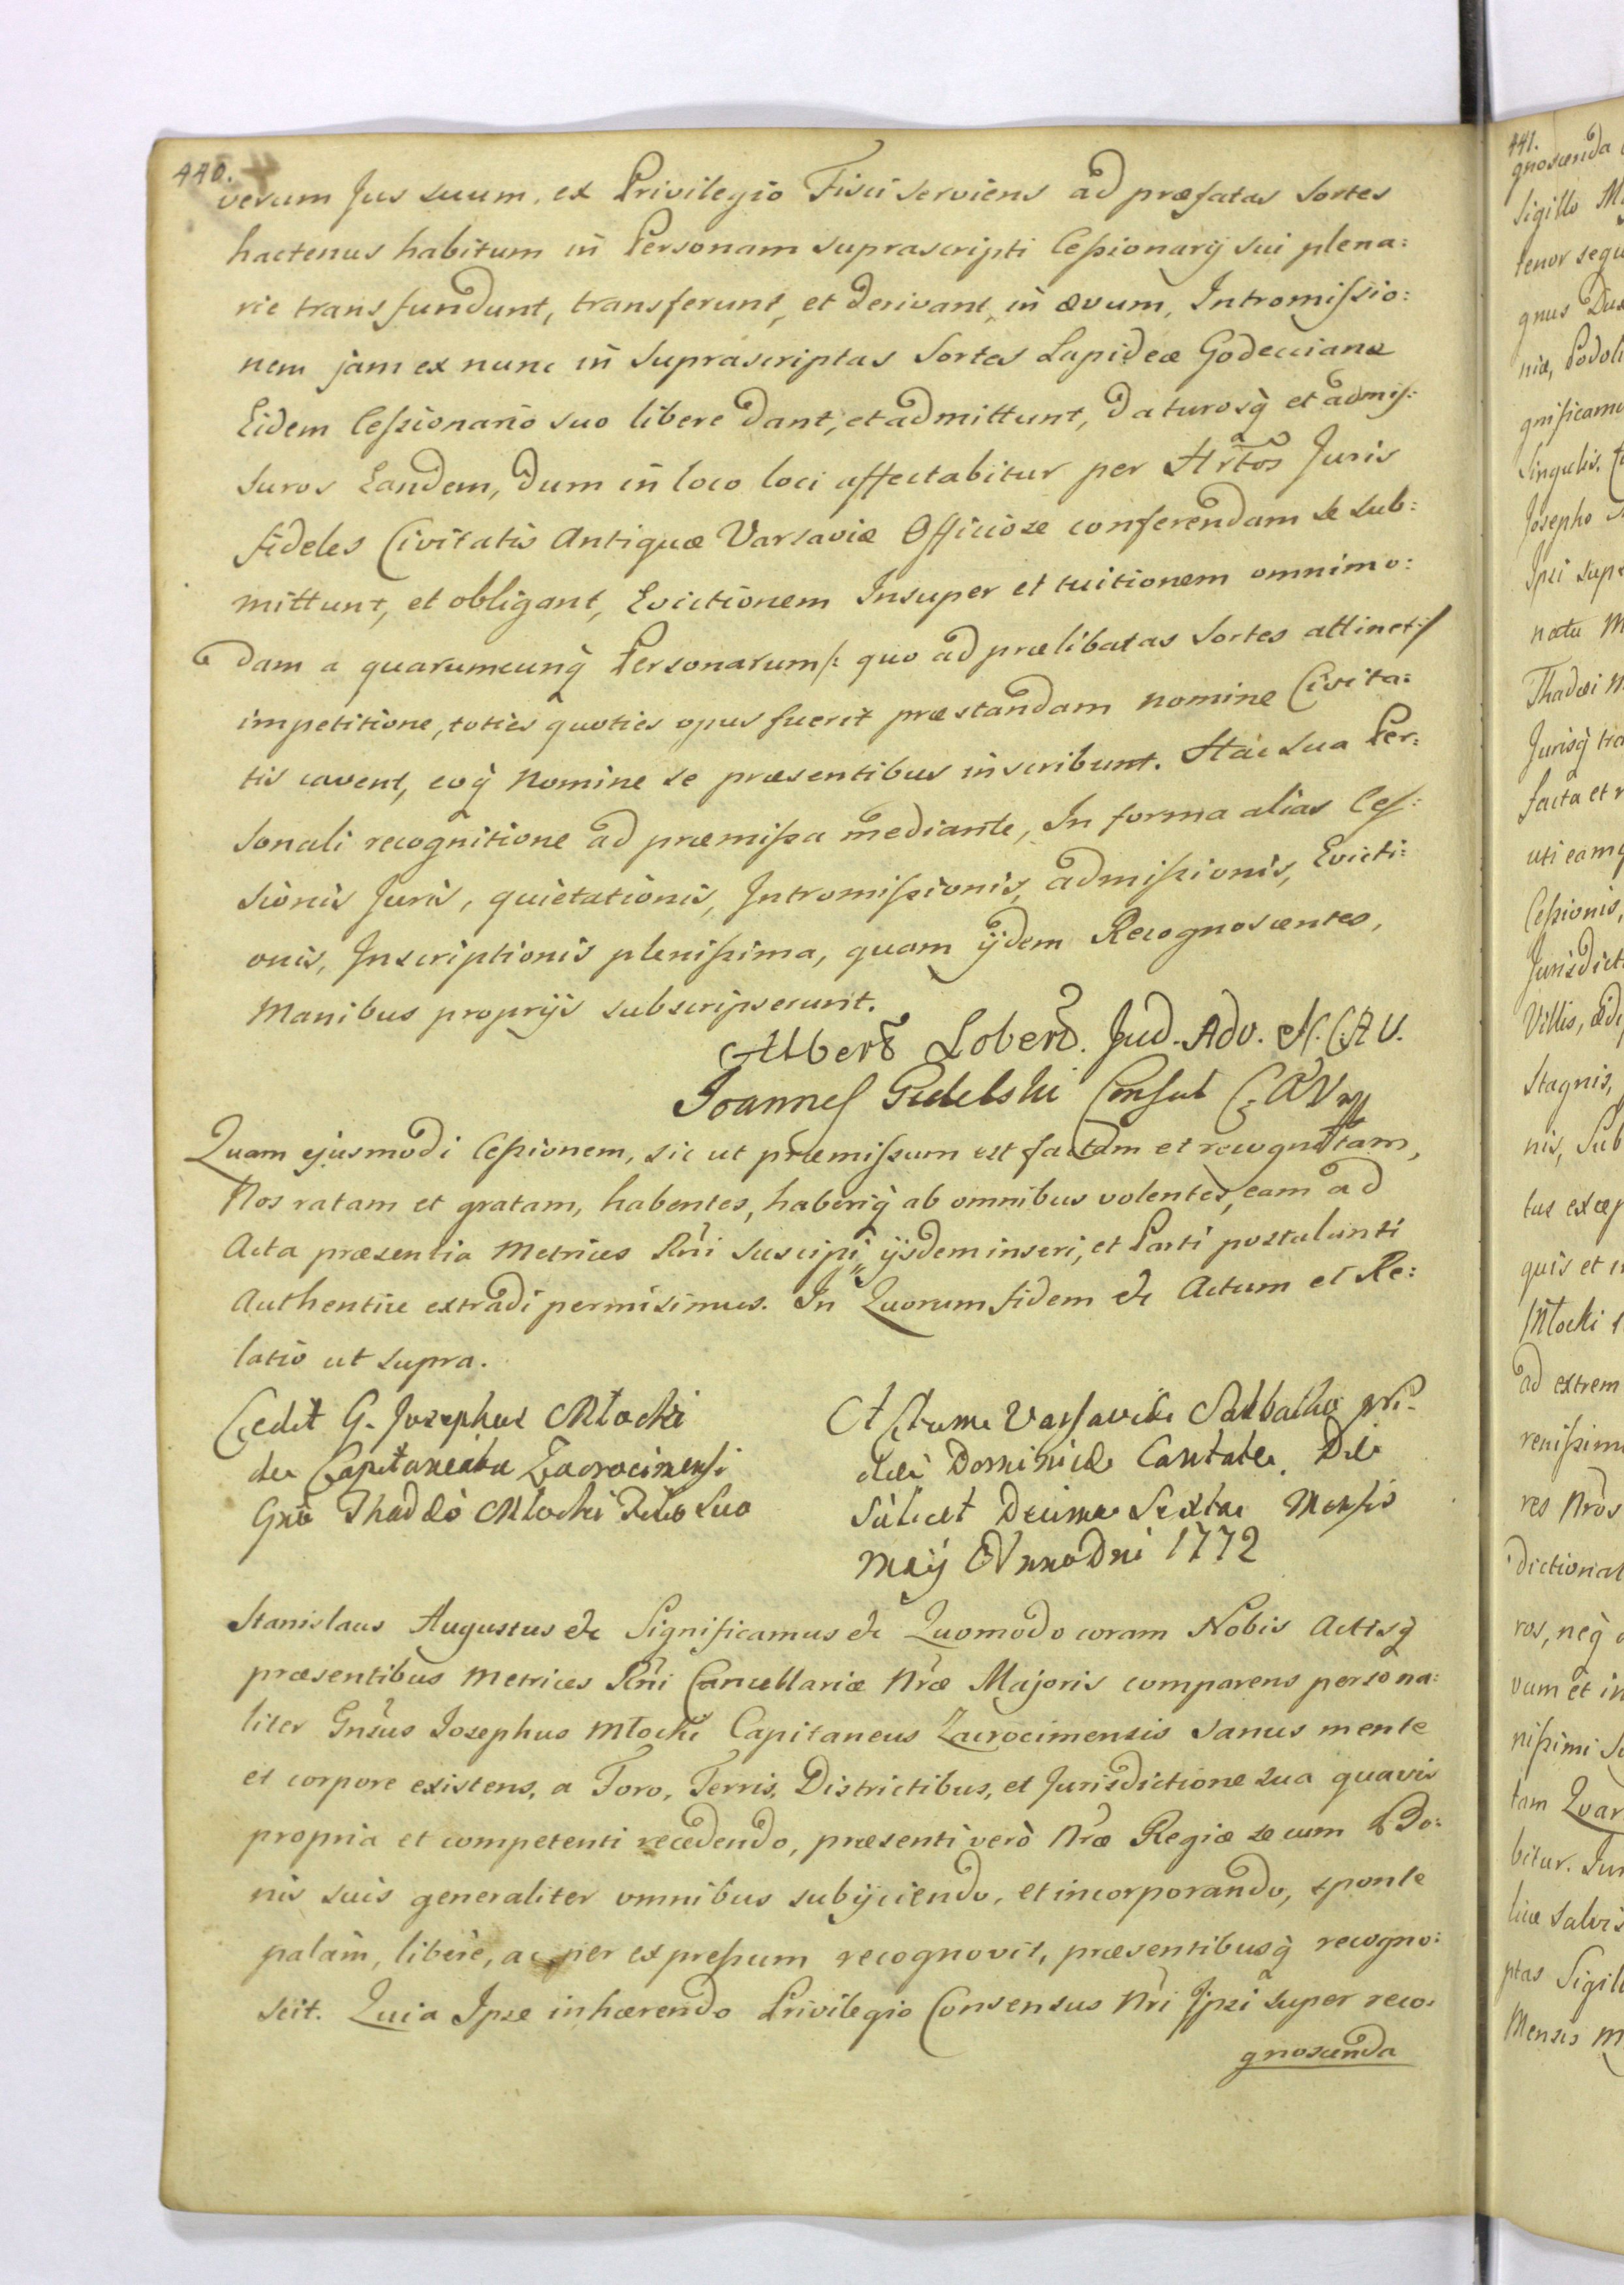 440.
verum Jus suum, ex Privilegio Fisci serviens ad præfatas Sortes
hactenus habitum in Personam suprascripti Cessionarij sui plena:
rie transfundunt, transferunt, et derivant, in ævum, Intromissio:
nem jam ex nunc in Suprascriptas Sortes Lapideæ Godeccianæ
Eidem Cessionario suo libere dant, et admittunt, daturosq̀ et admis:
suros Eandem, dum in loco loci affectabitur per Hrtos Juris
fideles Civitatis Antiquæ Varsaviæ Officiose conferendam se sub:
mittunt, et obligant, Evictionem Insuper et tuitionem omnimo:
dam a quarumcunq̀ Personarum /: quo ad prælibatas Sortes attinet :/
impetitione, toties quoties opus fuerit præstandam nomine Civita:
tis cavent, eoq̀ Nomine se præsentibus inscribunt. Hac sua Per:
sonali recognitione ad præmissa mediante, In forma alias Ces:
sionis Juris, quietationis, Intromissionis, admissionis, Evicti:
onis, Inscriptionis plenissima, quam ijdem Recognoscentes,
Manibus proprijs subscripserunt.
Albert9 Lobert. Jud. Adv. N. C. A V.
Joannes Gidelski Consul C. A V
Quam ejusmodi Cessionem, sic ut præmissum est factam et recognitam,
Nos ratam et gratam, habentes, haberiq̀ ab omnibus volentes, eam ad
Acta præsentia Metrices Rñi suscipi, ijsdem inseri, et Parti postulanti
Authentice extradi permisimus. In Quorum fidem &c Actum et Re:
latio ut supra.
Cedit G. Josephus Młocki
de Capitaneatu Zacrocimensi
Gnõ Thaddæo Młocki Filio Suo
Actum Varsaviæ Sabbatho pri-
die Dominicæ Cantate, Die
Scilicet Decima Sexta Mensis
Maij Anno Dni 1772
Stanislaus Augustus &c Significamus &c Quomodo coram Nobis Actisq̀
præsentibus Metrices Rñi Cancellariæ Nræ Majoris comparens persona:
liter Gnsus Josephus Młocki Capitaneus Zacrocimensis sanus mente
et corpore existens, a Foro, Terris, Districtibus, et Jurisdictione sua quavis
propria et competenti recedendo, præsenti verò Nræ Regiæ se cum Bo:
nis suis generaliter omnibus subijciendo, et incorporando, sponte
palam, libere, ac per expressum recognovit, præsentibusq̀ recogno:
scit. Quia Ipse inhærendo Privilegio Consensus Nri Ipsi super reco:
gnoscenda
441.
gnoscenda
Sigillo
tenor
gnus
niæ, Podoli
gnificam
Singulis.
Josepho
Ipsi
natu
Thadæi
Jurisq̀
facta et
uti
Cessionis,
Jurisdict
Villis,
Stagnis,
nis, Sub
tus
quis et
Młocki
ad extrem
renissim
res Nros
dictional
ros, neq̀
vum et in
nissimi
tam Quar
bitur. Jur
licæ salvis
ptas Sigill
Mensis